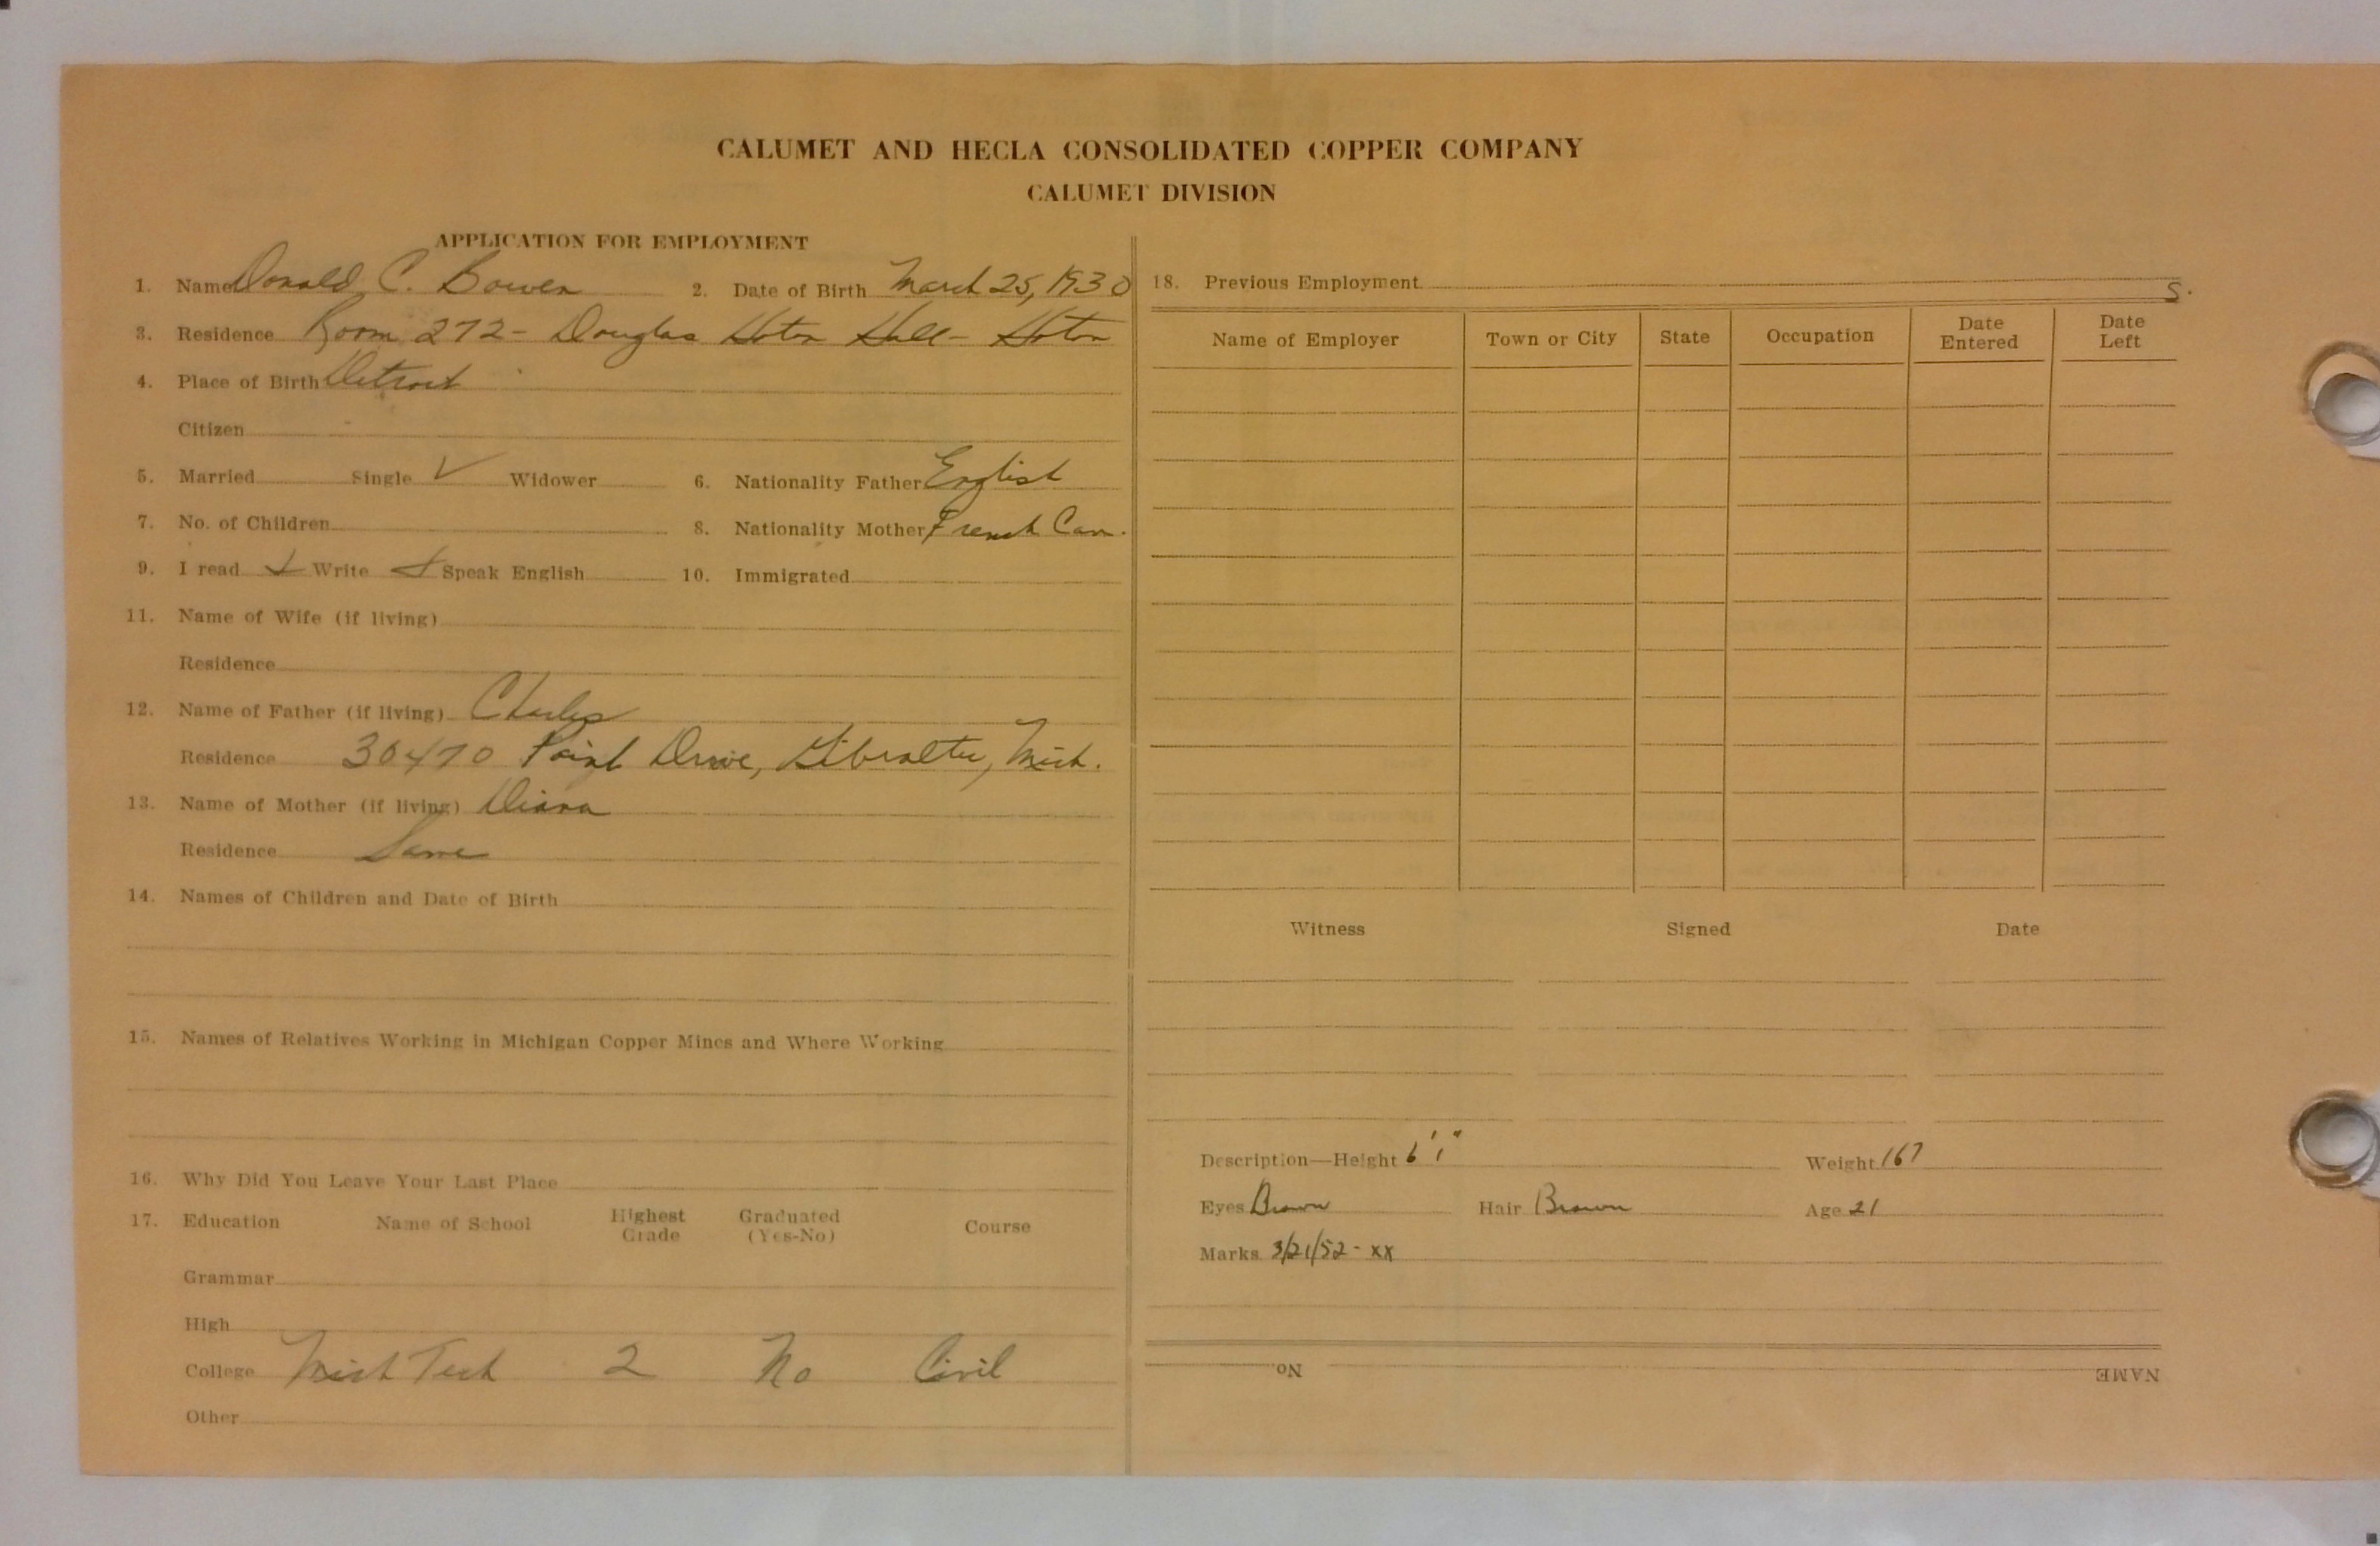 CALUMET AND HECLA CONSOLIDATED COPPER COMPANY
CALUMET DIVISION
APPLICATION FOR EMPLOYMENT
1. Name Donald C. Bowen 2. Date of Birth March 25, 1930
3. Residence Room 272 - Douglas Hoton Hall - Hoton
4. Place of Birth Detroit
Citizen
5. Married Single ✓ Widower 6. Nationality Father English
7. No. of Children 8. Nationality Mother French Can.
9. I read ✓ Write ✓ Speak English 10. Immigrated
11. Name of Wife (if living)
Residence
12. Name of Father (if living) Charles
Residence 30470 Point Drive, Gibralter, Mich.
13. Name of Mother (if living) Diana
Residence Same
14. Names of Children and Date of Birth
15. Names of Relatives Working in Michigan Copper Mines and Where Working
16. Why Did You Leave Your Last Place
17. Education Name of School Highest Grade Graduated (Yes-No) Course
Grammar
High
College Mich Tech 2 No Civil
Other
18. Previous Employment
S.
Name of Employer Town or City State Occupation Date Entered Date Left
Witness Signed Date
Description—Height 6'1" Weight 167
Eyes Brown Hair Brown Age 21
Marks 3/21/52 - xx
No.
NAME